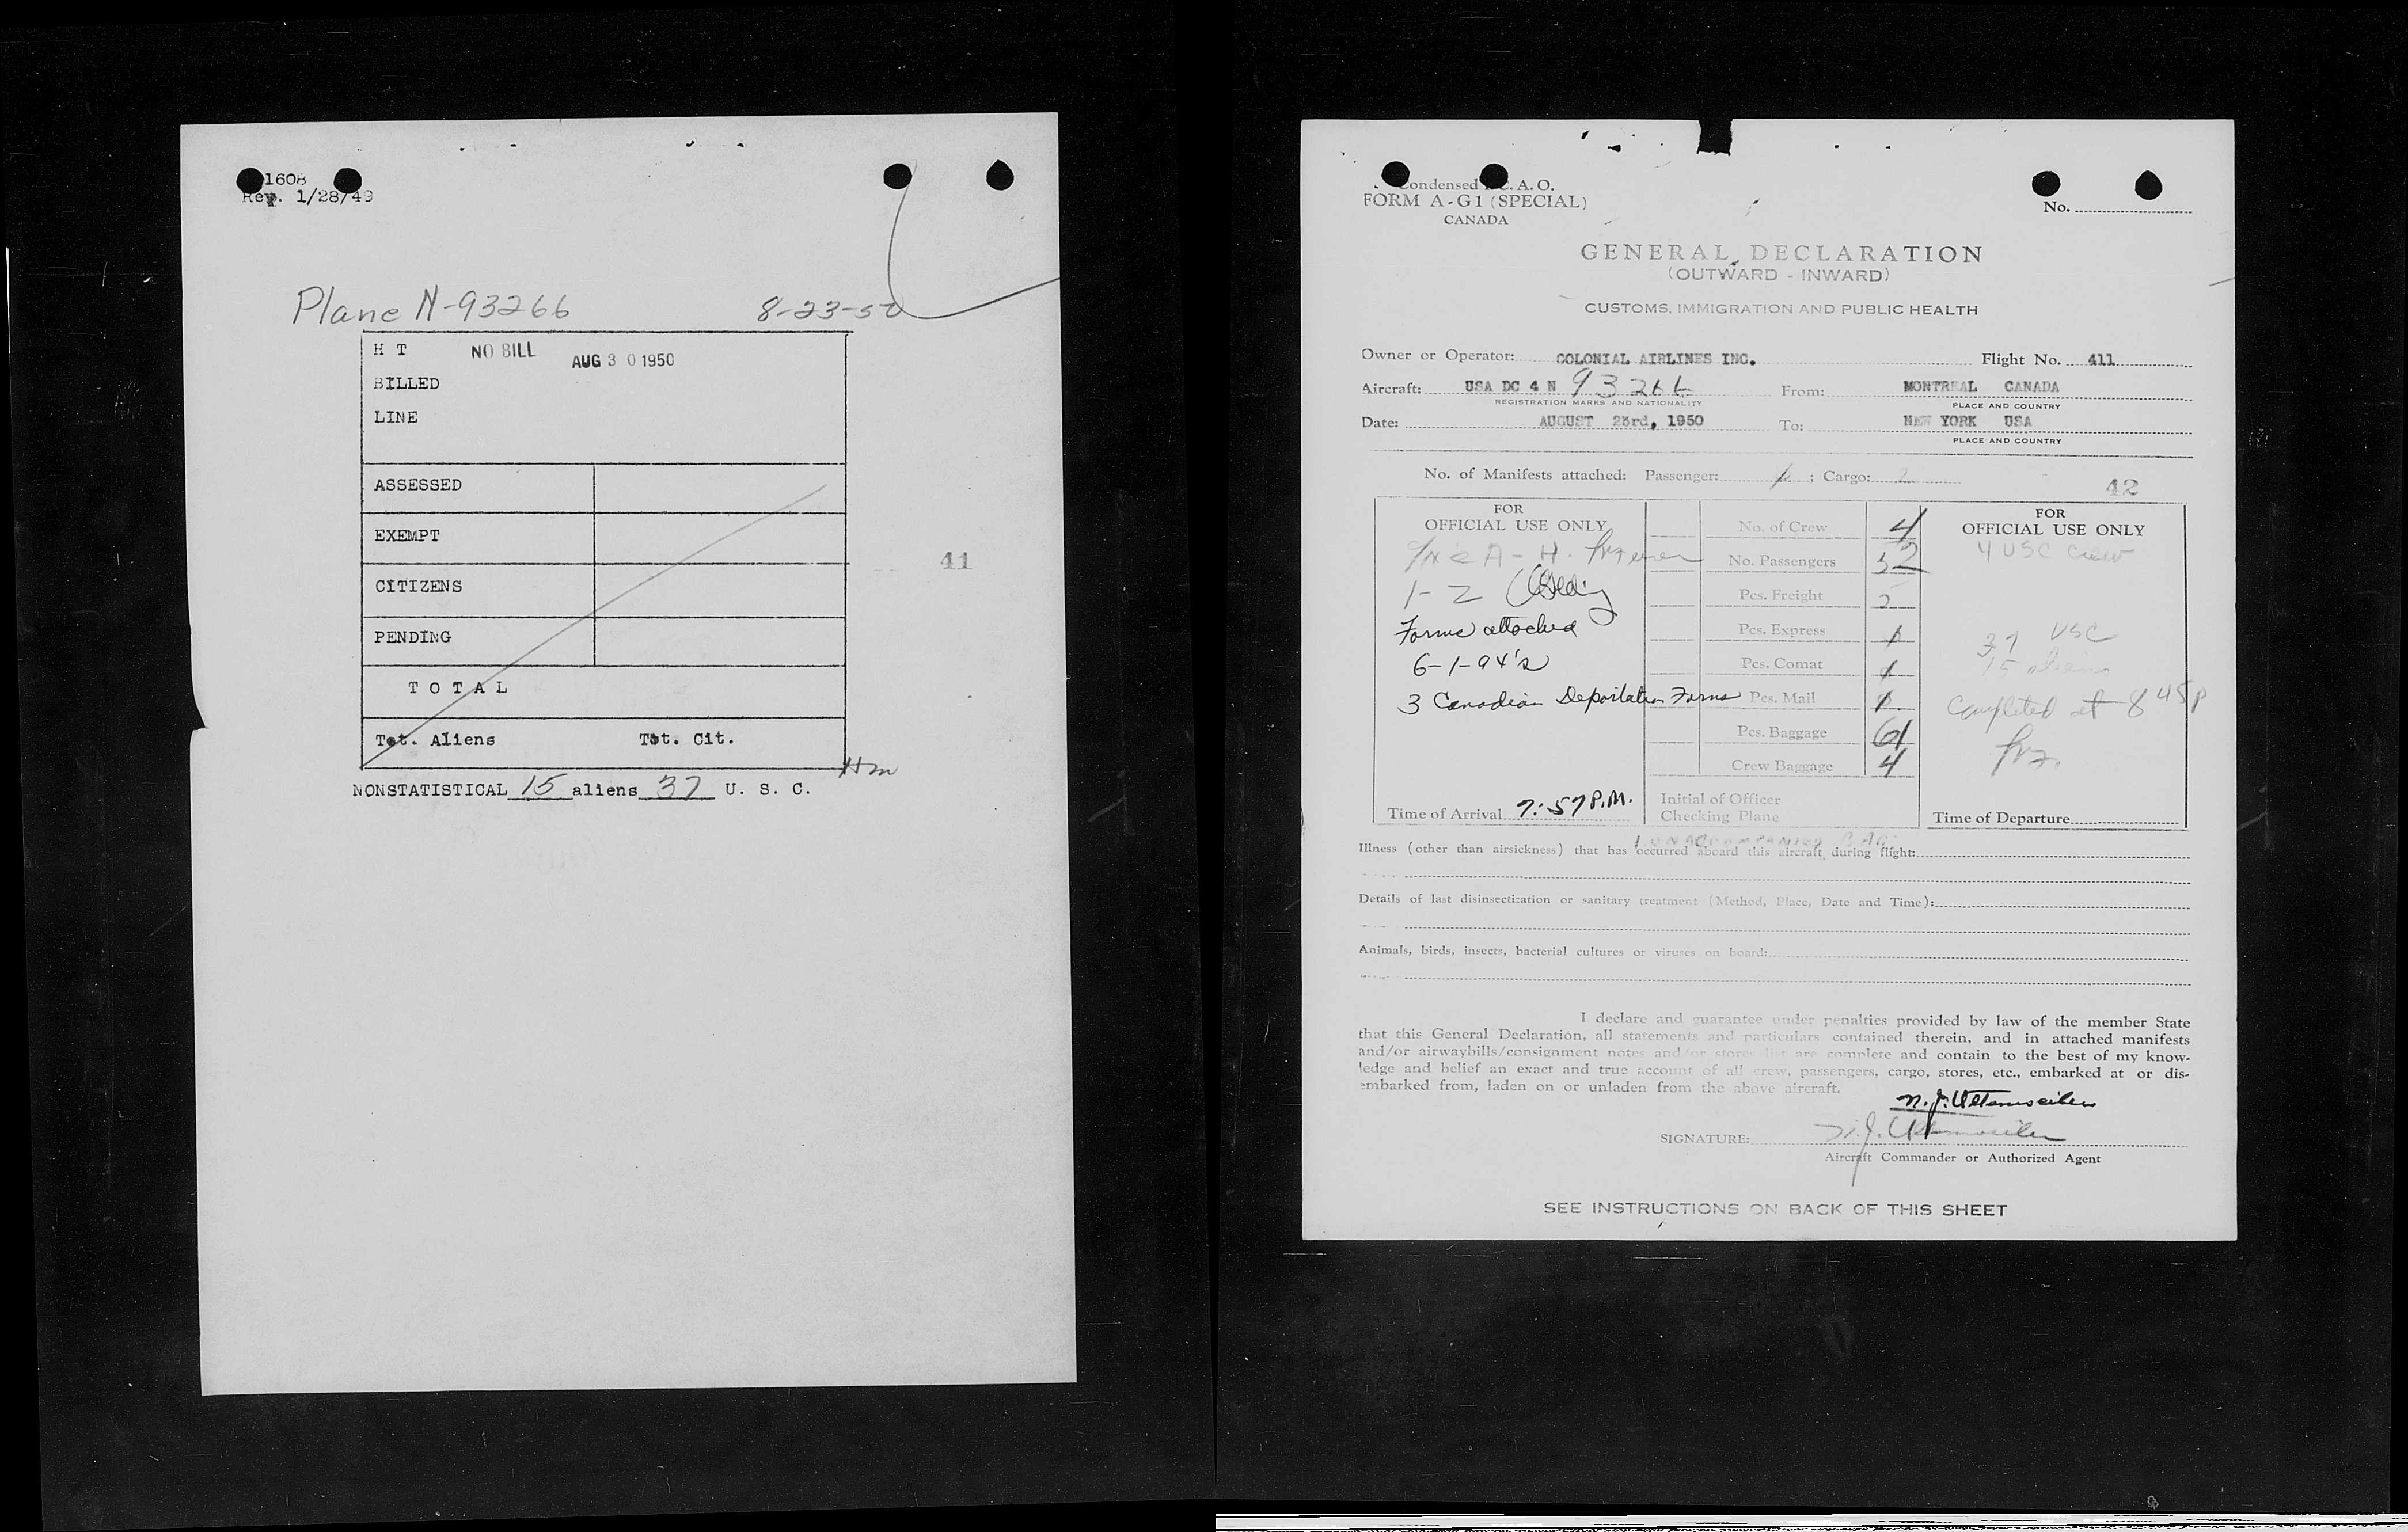 1608
Rev. 1/28/49
Plane N-93266 8-23-50
H T NO BILL AUG 30 1950
BILLED
LINE
ASSESSED
EXEMPT
CITIZENS
PENDING
TOTAL
Tot. Aliens Tot. Cit.
Hm
NONSTATISTICAL 15 aliens 37 U. S. C.
41
Condensed I.C.A.O.
FORM A-G1 (SPECIAL)
CANADA
No.
GENERAL DECLARATION
(OUTWARD - INWARD)
CUSTOMS, IMMIGRATION AND PUBLIC HEALTH
Owner or Operator: COLONIAL AIRLINES INC. Flight No. 411
Aircraft: USA DC 4 N 93266 From: MONTREAL CANADA
REGISTRATION MARKS AND NATIONALITY PLACE AND COUNTRY
Date: AUGUST 23rd, 1950 To: NEW YORK USA
PLACE AND COUNTRY
No. of Manifests attached: Passenger: 1 ; Cargo: 2
42
FOR
OFFICIAL USE ONLY
1-2
Forms attached
6-1-94's
3 Canadian Deportation Forms
Time of Arrival 7:57 P.M.
No. of Crew 4
No. Passengers 52
Pcs. Freight
Pcs. Express
Pcs. Comat
Pcs. Mail
Pcs. Baggage 61
Crew Baggage 4
Initial of Officer
Checking Plane
FOR
OFFICIAL USE ONLY
4 USC Crew
37 USC
15 aliens
Completed at 8 45 P
Time of Departure
1 UNACCOMPANIED BAG
Illness (other than airsickness) that has occurred aboard this aircraft during flight:
Details of last disinsectization or sanitary treatment (Method, Place, Date and Time):
Animals, birds, insects, bacterial cultures or viruses on board:
I declare and guarantee under penalties provided by law of the member State
that this General Declaration, all statements and particulars contained therein, and in attached manifests
and/or airwaybills/consignment notes and/or stores list are complete and contain to the best of my know-
ledge and belief an exact and true account of all crew, passengers, cargo, stores, etc., embarked at or dis-
embarked from, laden on or unladen from the above aircraft.
SIGNATURE:
Aircraft Commander or Authorized Agent
SEE INSTRUCTIONS ON BACK OF THIS SHEET